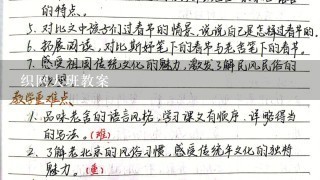 的特点。
5. 对比文中孩子们过春节的情景,说说自己是怎样过春节的。
6. 拓展阅读,对比斯好笔下的春节与老舍笔下的春节。
7. 感受祖国传统文化的魅力,激发了解民风民俗的
织网大班教案
教学重难点
1. 品味老舍的语言风格,学习课文有顺序、详略得当
的写法。(难)
2. 了解老北京的风俗习惯,感受传统年文化的独特
魅力。(重)